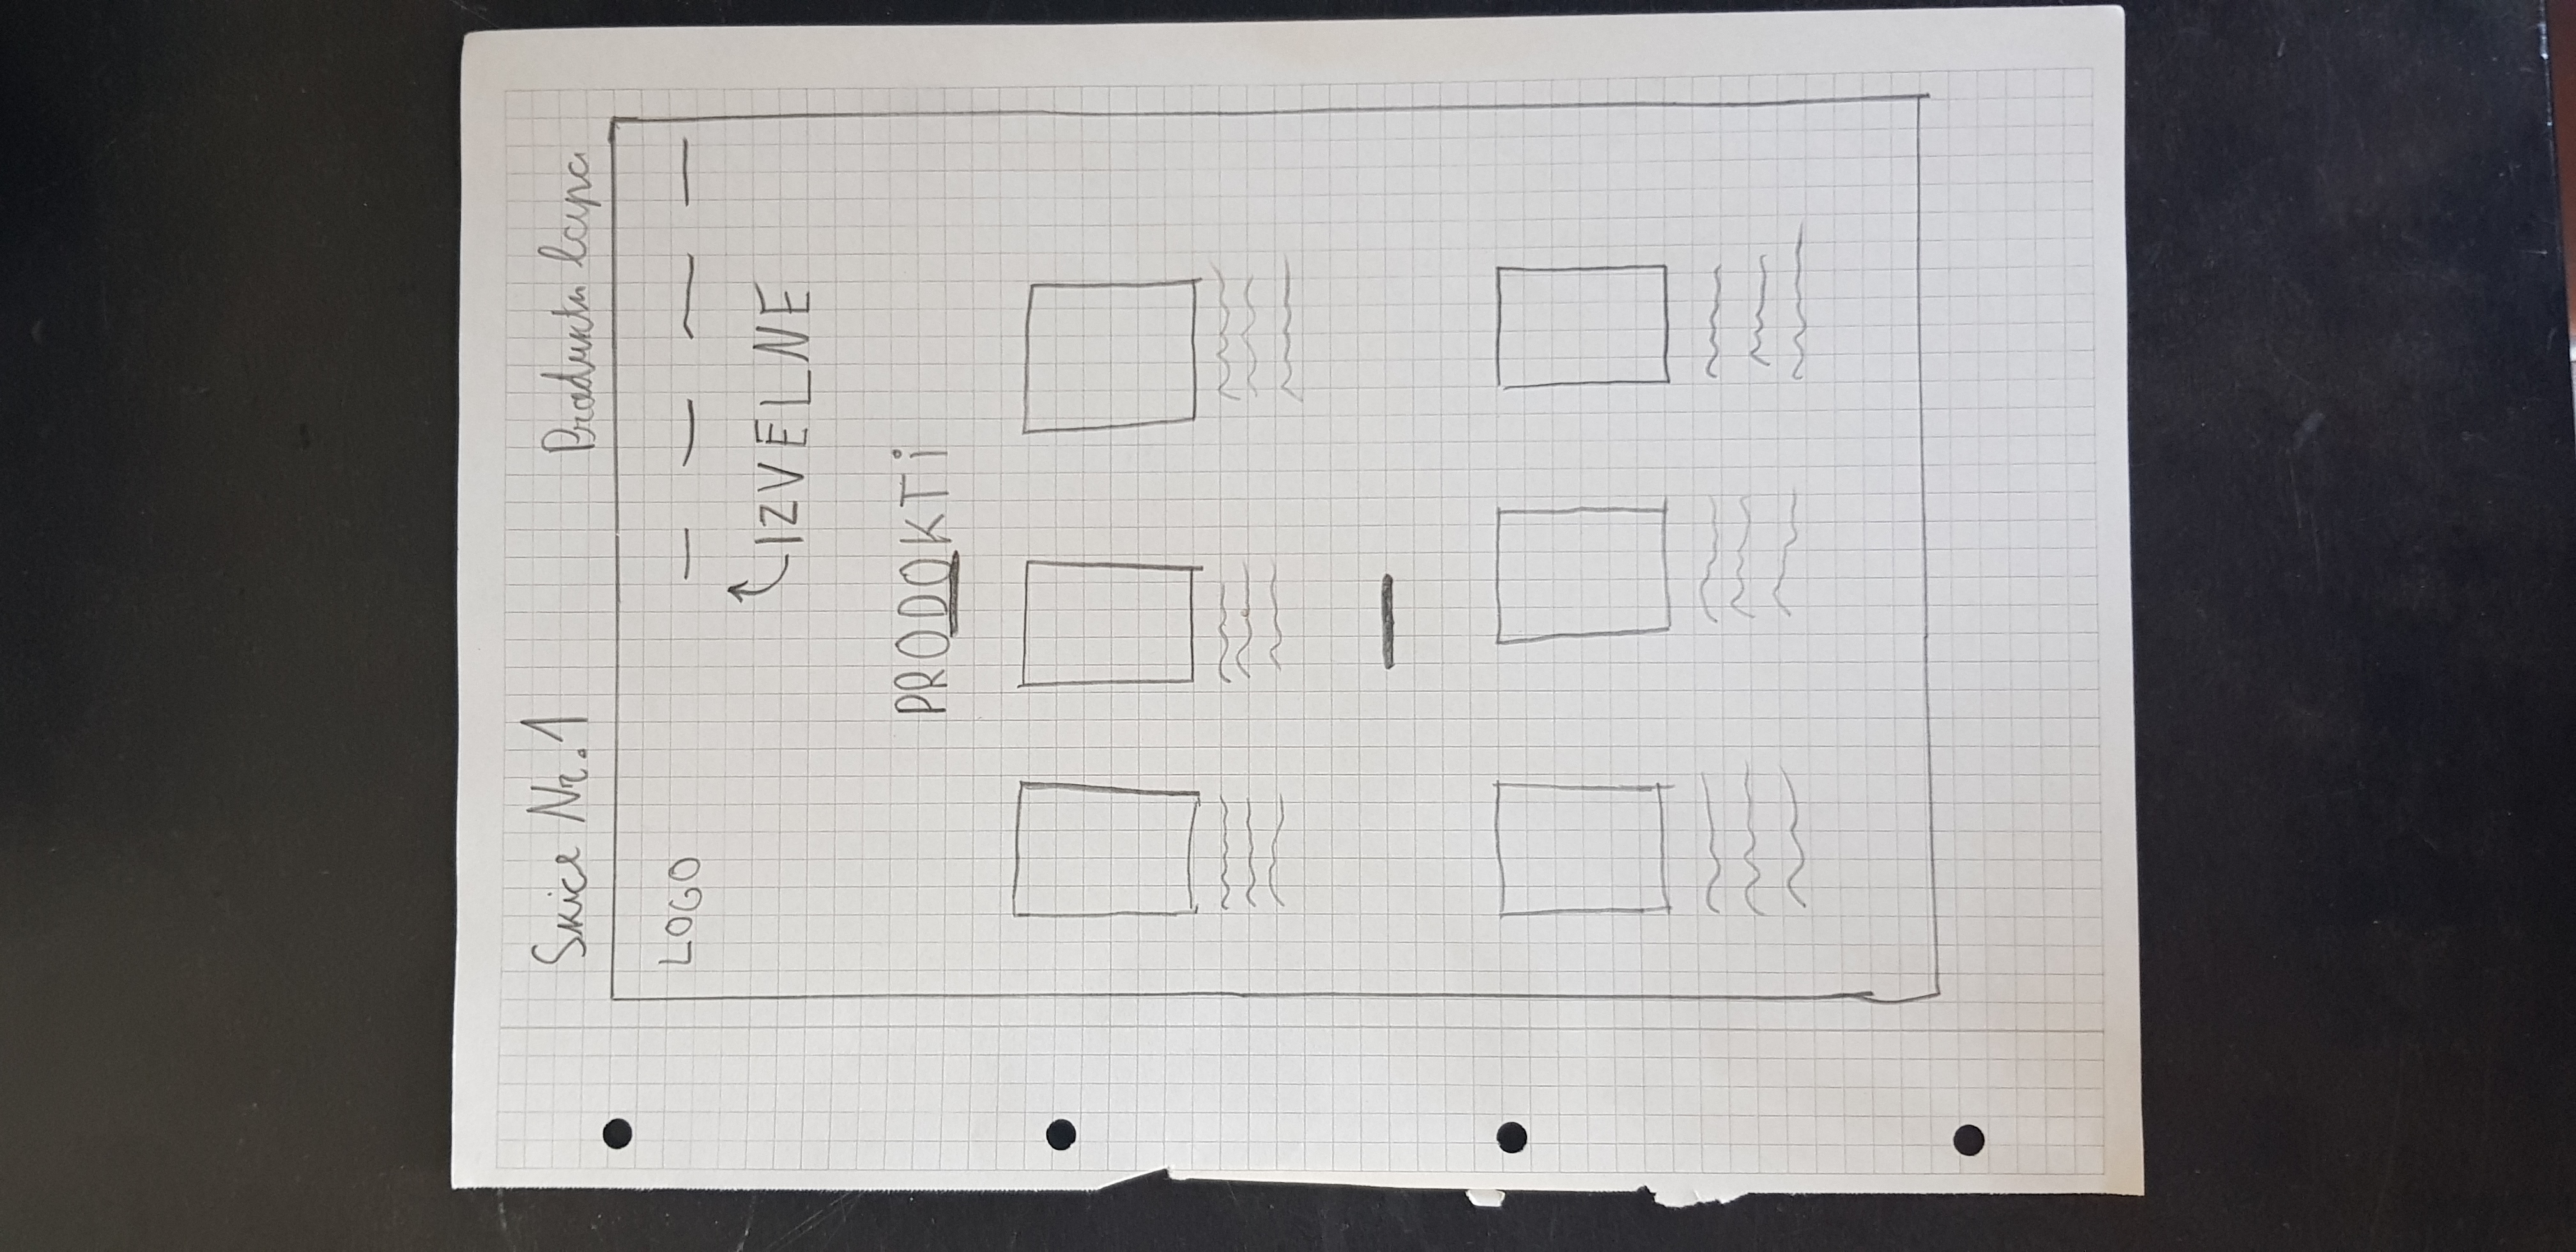 Skice Nr. 1 Produktu lapa
LOGO
IZVĒLNE
PRODOKTi